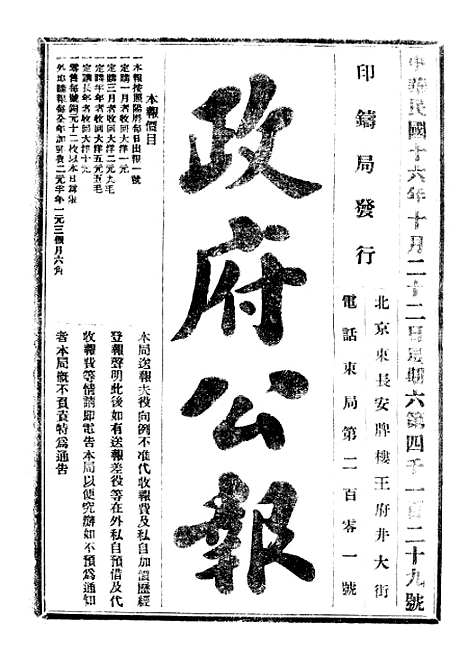 中華民國十六年十月二十二日星期六第四千一百二十九號
印鑄局發行
北京東長安牌樓王府井大街
電話東局第二百零一號
政府公報
本局送報夫役向例不准代收報費及私自加價歷經
登報聲明此後如有送報差役等在外私自預借及代
收報費等情請即電告本局以便究辦如不預爲通知
者本局概不負責特爲通告
本報價目
一本報按照陽曆每日出報一號
一定購一月者收回大洋一元
一定購三月者收回大洋二元九毛
一定購半年者收回大洋五元五毛
一定購長年者收回大洋十元
一零售每號銅元十二枚以本日爲限
一外埠購報每全年加郵費二元半年一元三個月六角